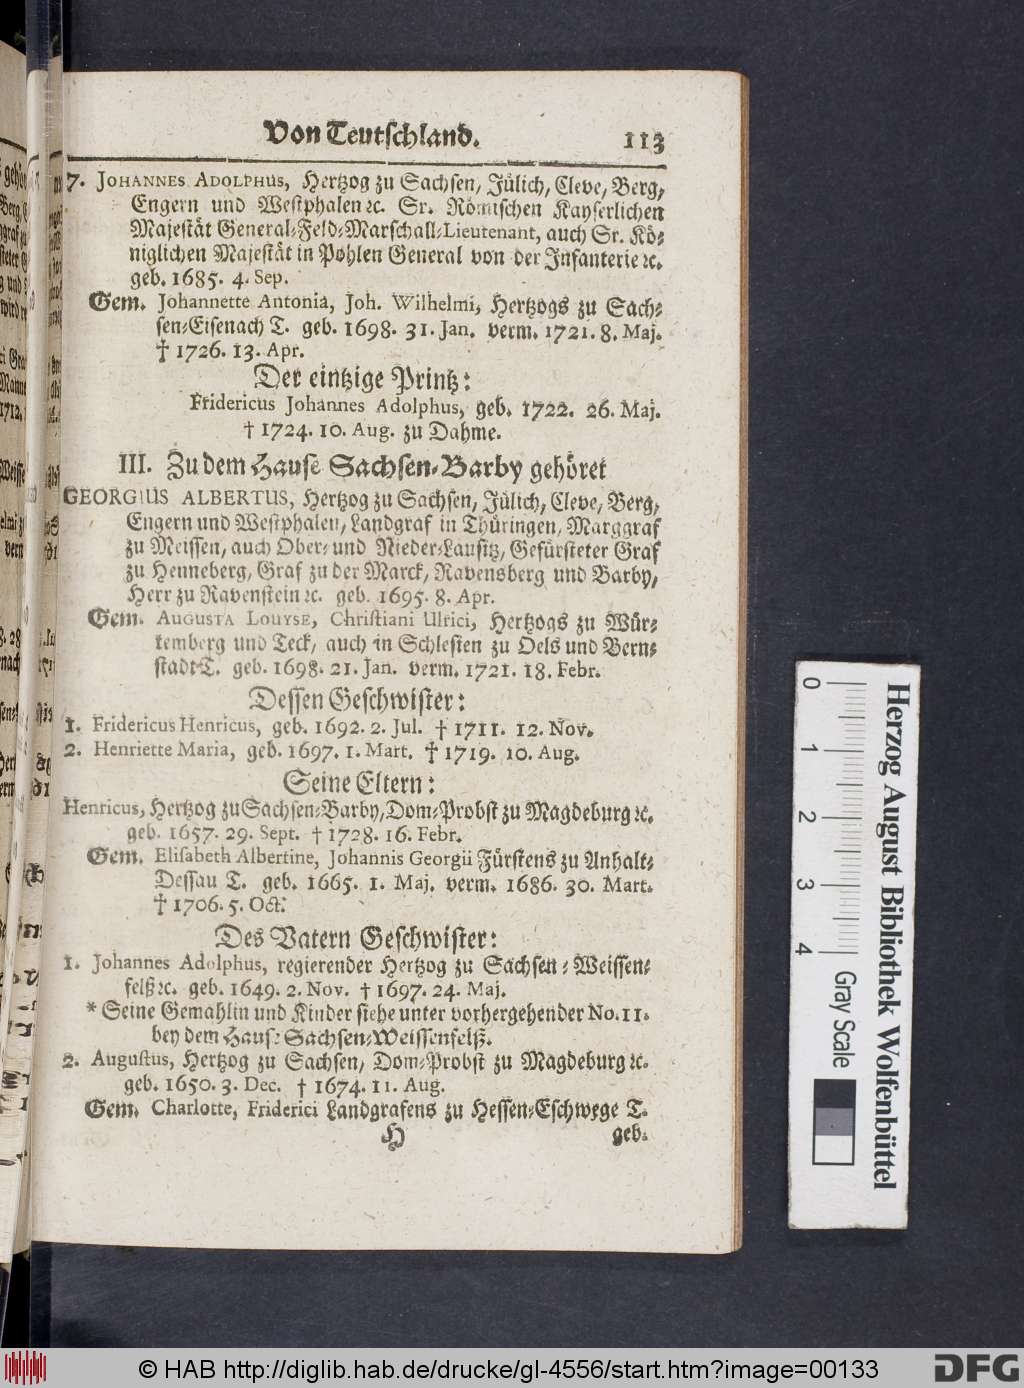 Von Teutschland. 113
7. JOHANNES ADOLPHUS, Hertzog zu Sachsen, Jülich, Cleve, Berg,
Engern und Westphalen ꝛc. Sr. Römischen Kayserlichen
Majestät General-Feld-Marschall-Lieutenant, auch Sr. Kö-
niglichen Majestät in Pohlen General von der Infanterie ꝛc.
geb. 1685. 4. Sep.
Gem. Johannette Antonia, Joh. Wilhelmi, Hertzogs zu Sach-
sen-Eisenach T. geb. 1698. 31. Jan. verm. 1721. 8. Maj.
† 1726. 13. Apr.
Der eintzige Printz:
Fridericus Johannes Adolphus, geb. 1722. 26. Maj.
† 1724. 10. Aug. zu Dahme.
III. Zu dem Hause Sachsen-Barby gehöret
GEORGIUS ALBERTUS, Hertzog zu Sachsen, Jülich, Cleve, Berg,
Engern und Westphalen, Landgraf in Thüringen, Marggraf
zu Meissen, auch Ober- und Nieder-Lausitz, Gefürsteter Graf
zu Henneberg, Graf zu der Marck, Ravensberg und Barby,
Herr zu Ravenstein ꝛc. geb. 1695. 8. Apr.
Gem. AUGUSTA LOUYSE, Christiani Ulrici, Hertzogs zu Wür-
temberg und Teck, auch in Schlesien zu Oels und Bern-
stadt T. geb. 1698. 21. Jan. verm. 1721. 18. Febr.
Dessen Geschwister:
1. Fridericus Henricus, geb. 1692. 2. Jul. † 1711. 12. Nov.
2. Henriette Maria, geb. 1697. 1. Mart. † 1719. 10. Aug.
Seine Eltern:
Henricus, Hertzog zu Sachsen-Barby, Dom-Probst zu Magdeburg ꝛc.
geb. 1657. 29. Sept. † 1728. 16. Febr.
Gem. Elisabeth Albertine, Johannis Georgii Fürstens zu Anhalt-
Dessau T. geb. 1665. 1. Maj. verm. 1686. 30. Mart.
† 1706. 5. Oct.
Des Vatern Geschwister:
1. Johannes Adolphus, regierender Hertzog zu Sachsen-Weissen-
felß ꝛc. geb. 1649. 2. Nov. † 1697. 24. Maj.
* Seine Gemahlin und Kinder siehe unter vorhergehender No. 11.
bey dem Hause Sachsen-Weissenfelß.
2. Augustus, Hertzog zu Sachsen, Dom-Probst zu Magdeburg ꝛc.
geb. 1650. 3. Dec. † 1674. 11. Aug.
Gem. Charlotte, Friderici Landgrafens zu Hessen-Eschwege T.
H geb.
0 1 2 3 4 Gray Scale
Herzog August Bibliothek Wolfenbüttel
© HAB http://diglib.hab.de/drucke/gl-4556/start.htm?image=00133
DFG